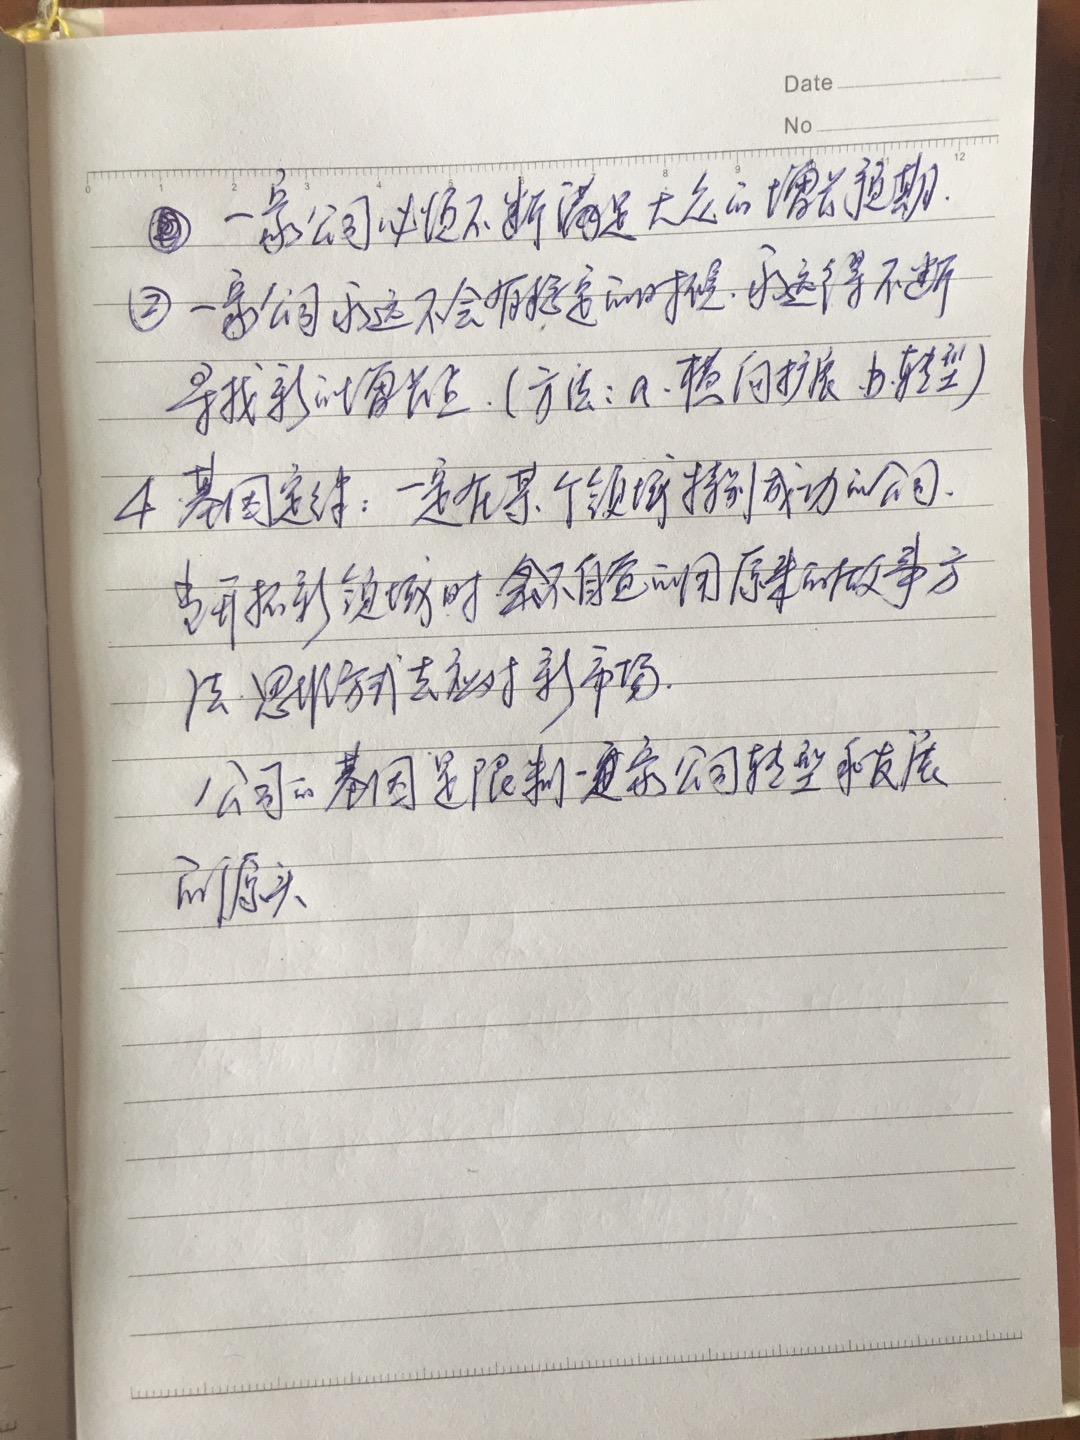 Date
No
0 1 2 3 4 5 6 7 8 9 11 12
一家公司必须不断满足大众的增长预期.
② 一家公司永远不会有稳定的时候.永远得不断
寻找新的增长点.(方法:a.横向扩展 b.转型)
4 基因定律:一定在某个领域特别成功的公司.
当开拓新领域时会不自觉的用原来的做事方
法.思维方式去应对新市场.
公司的基因是限制一家公司转型和发展
的源头